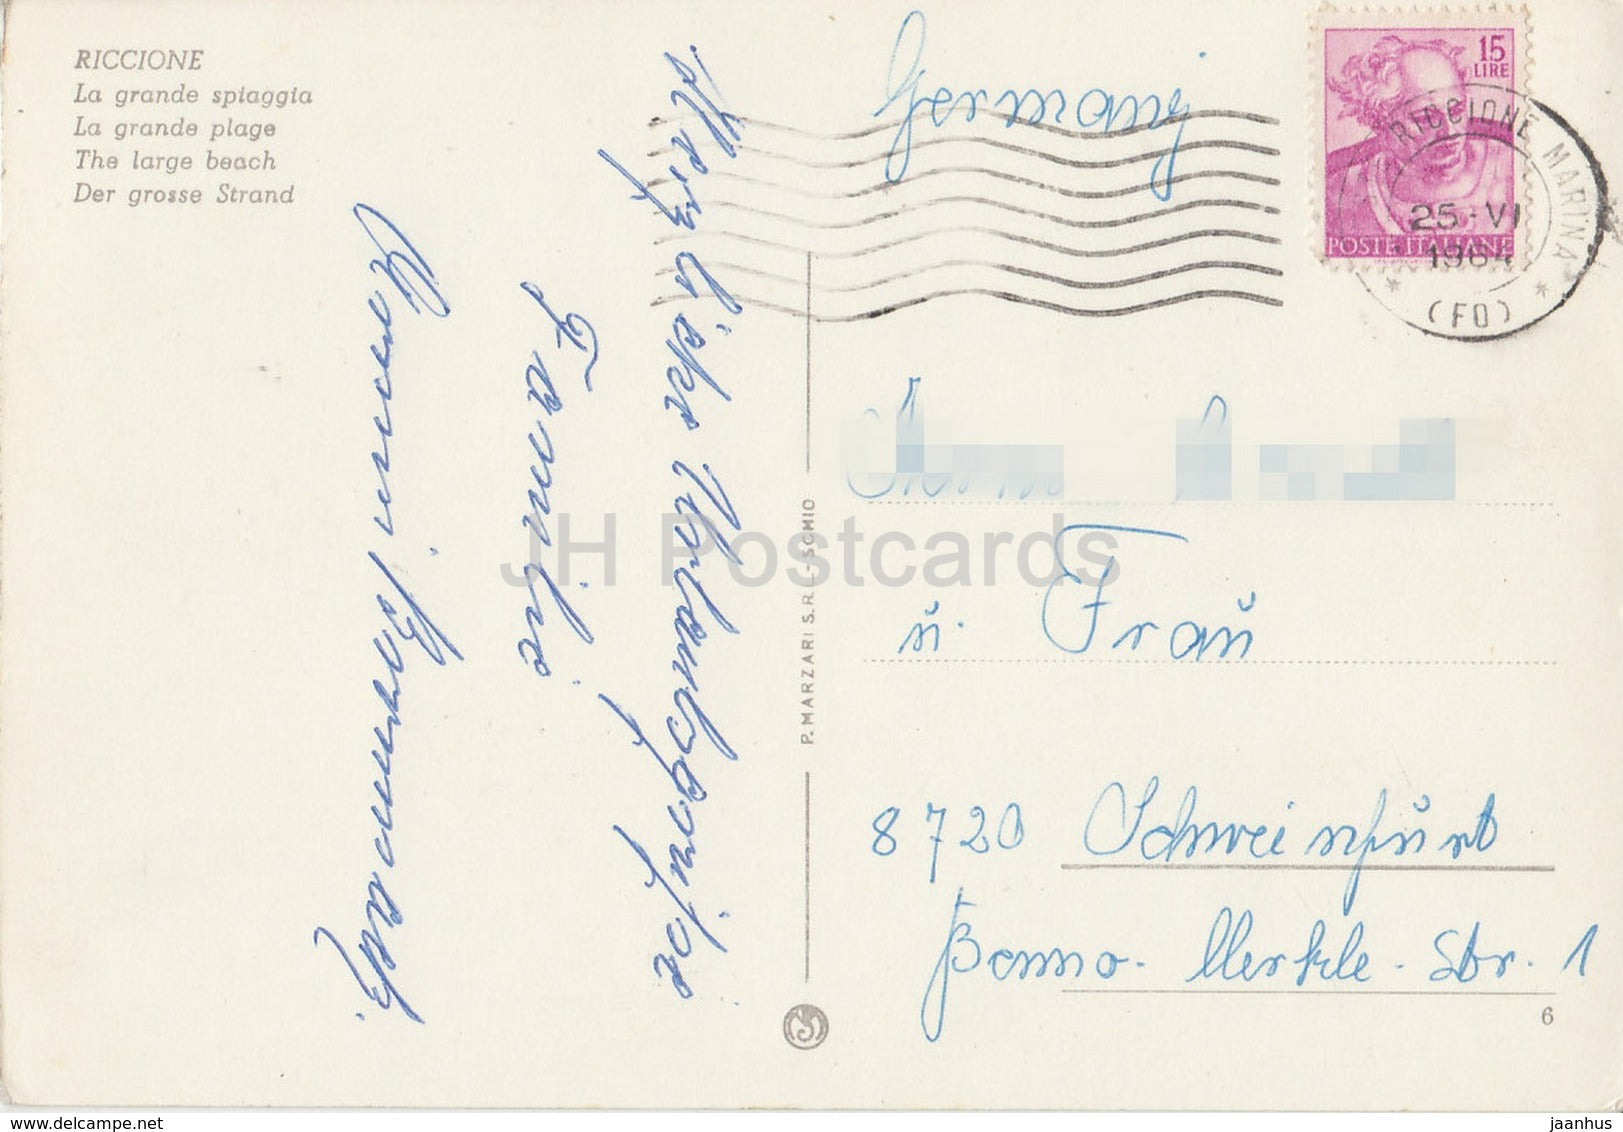 RICCIONE
La grande spiaggia
La grande plage
The large beach
Der grosse Strand
Herzliche Urlaubsgrüße
Familie
Germany
15
LIRE
POSTE ITALIANE
RICCIONE MARINA
25-VI
1964
(FO)
u. Frau
8720 Schweinfurt
Benno-Merkle-Str. 1
P. MARZARI S.R.L.-SCHIO
6
JH Postcards
www.delcampe.net
jaanhus